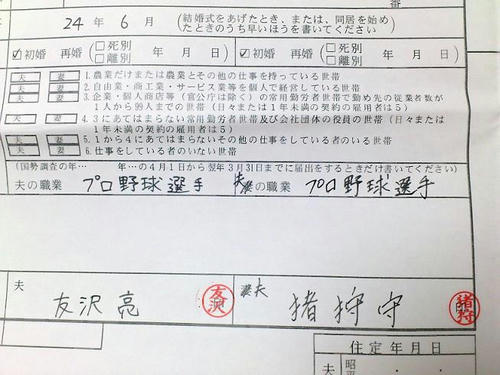 番
24年 6月 (結婚式をあげたとき、または、同居を始め
たときのうち早いほうを書いてください)
☑初婚 再婚 (□死別 □離別 年 月 日) ☑初婚 再婚 (□死別 □離別 年 月 日)
夫 妻 1.農業だけまたは農業とその他の仕事を持っている世帯
夫 妻 2.自由業・商工業・サービス業等を個人で経営している世帯
夫 妻 3.企業・個人商店等(官公庁は除く)の常用勤労者世帯で勤め先の従業者数が
1人から99人までの世帯(日々または1年未満の契約の雇用者は5)
夫 妻 4.3にあてはまらない常用勤労者世帯及び会社団体の役員の世帯(日々または
1年未満の契約の雇用者は5)
夫 妻 5.1から4にあてはまらないその他の仕事をしている者のいる世帯
夫 妻 6.仕事をしている者のいない世帯
(国勢調査の年… 年…の4月1日から翌年3月31日までに届出をするときだけ書いてください)
夫の職業 プロ野球選手 夫 の職業 プロ野球選手
夫 友沢亮 友沢 夫 猪狩守 猪狩
住定年月日
夫 昭